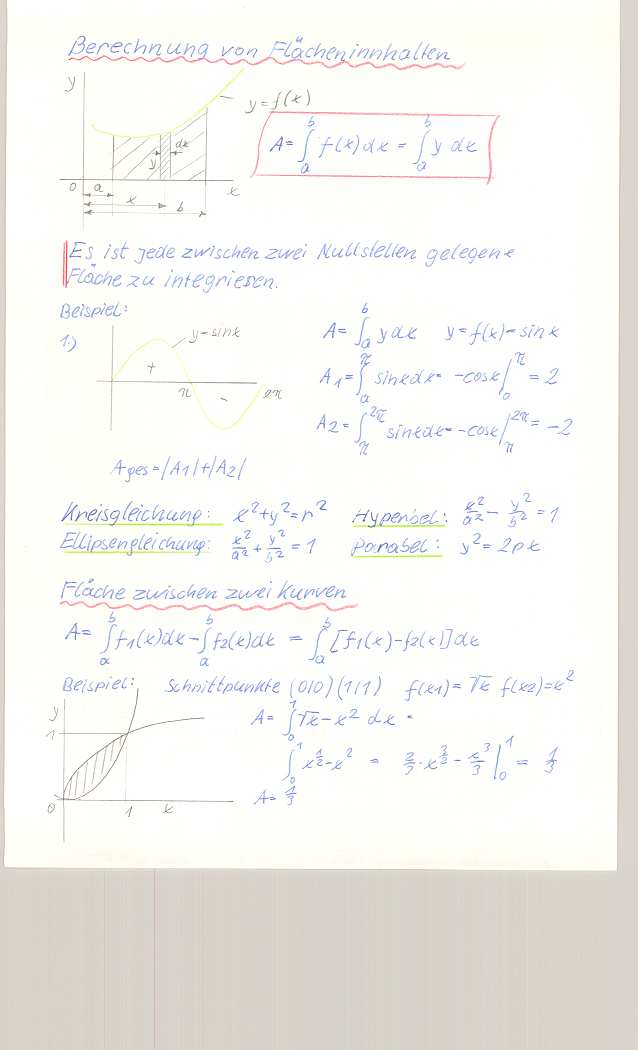 Berechnung von Flächeninnhalten
y
y = f(x)
A = ∫_a^b f(x) dx = ∫_a^b y dx
dx
y
0 a x
x
b
Es ist jede zwischen zwei Nullstellen gelegene
Fläche zu integrieren.
Beispiel:
1.)
y = sin x
+
π
-
2π
A = ∫_a^b y dx y = f(x) = sin x
A1 = ∫_a^π sin x dx = -cos x |_0^π = 2
A2 = ∫_π^2π sin x dx = -cos x |_π^2π = -2
Ages = |A1| + |A2|
Kreisgleichung: x² + y² = r² Hyperbel: x²/a² - y²/b² = 1
Ellipsengleichung: x²/a² + y²/b² = 1 Parabel: y² = 2px
Fläche zwischen zwei Kurven
A = ∫_a^b f1(x)dx - ∫_a^b f2(x)dx = ∫_a^b [f1(x) - f2(x)] dx
Beispiel: Schnittpunkte (0|0) (1|1) f(x1) = √x f(x2) = x²
y
1
0 1 x
A = ∫_0^1 √x - x² dx =
∫_0^1 x^1/2 - x² = 2/3 · x^3/2 - x³/3 |_0^1 = 1/3
A = 1/3